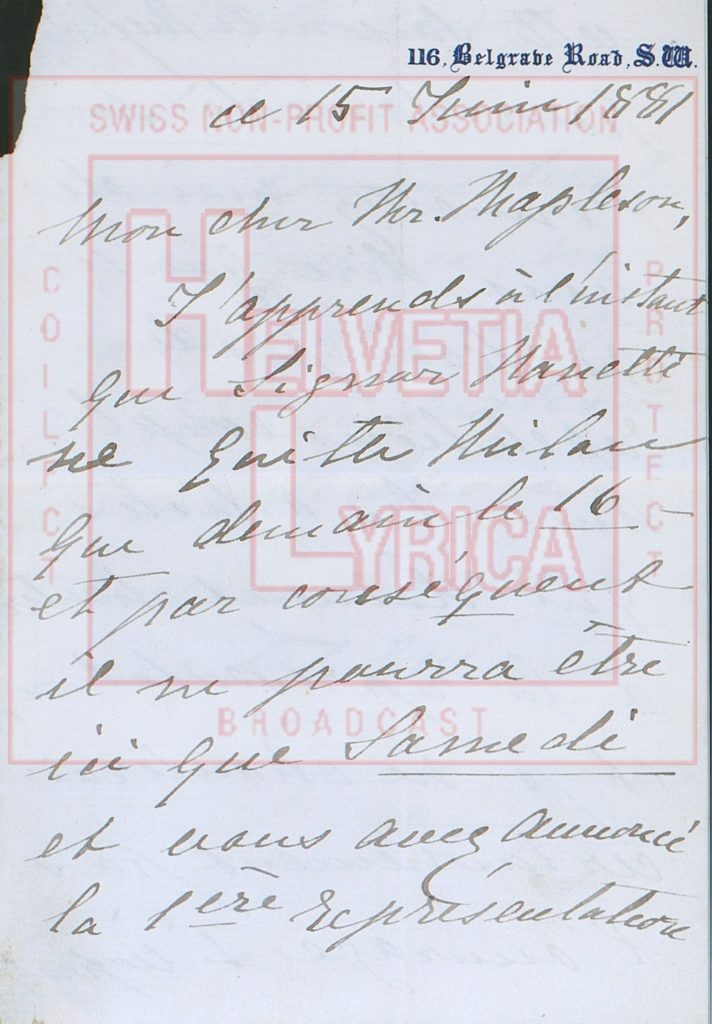 116, Belgrave Road, S.W.
ce 15 Juin 1881
SWISS NON-PROFIT ASSOCIATION
Mon cher Mr. Mapleson,
J'apprends à l'instant
HELVETIA
que Signor
ne quitte Milan
que demain, le 16 –
LYRICA
et par conséquent
il ne pourra être
BROADCAST
ici que Samedi
et vous avez annoncé
la 1ère représentation
COLLECT
PROTECT